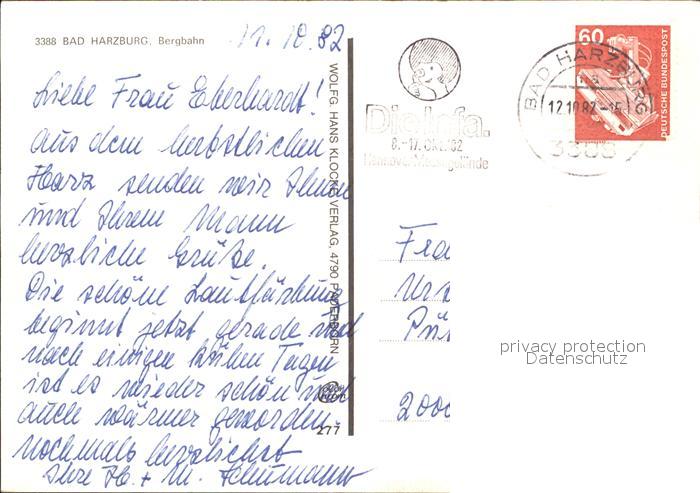 3388 BAD HARZBURG, Bergbahn
11.10.82
Liebe Frau Eberhardt!
Aus dem herbstlichen
Harz senden wir Ihnen
und Ihrem Mann
herzliche Grüße.
Die schöne Laubfärbung
beginnt jetzt gerade und
nach einigen trüben Tagen
ist es wieder schön und
auch wärmer geworden.
Nochmals herzlichst
Ihre H. + M. Schumann
WOLFG. HANS KLOCKE VERLAG, 4790 PADERBORN
277
Die Infa.
8.-17. Okt. '82
Hannover Messegelände
BAD HARZBURG
12.10.82-15
3388
60
DEUTSCHE BUNDESPOST
Fra
Urs
2000
privacy protection
Datenschutz